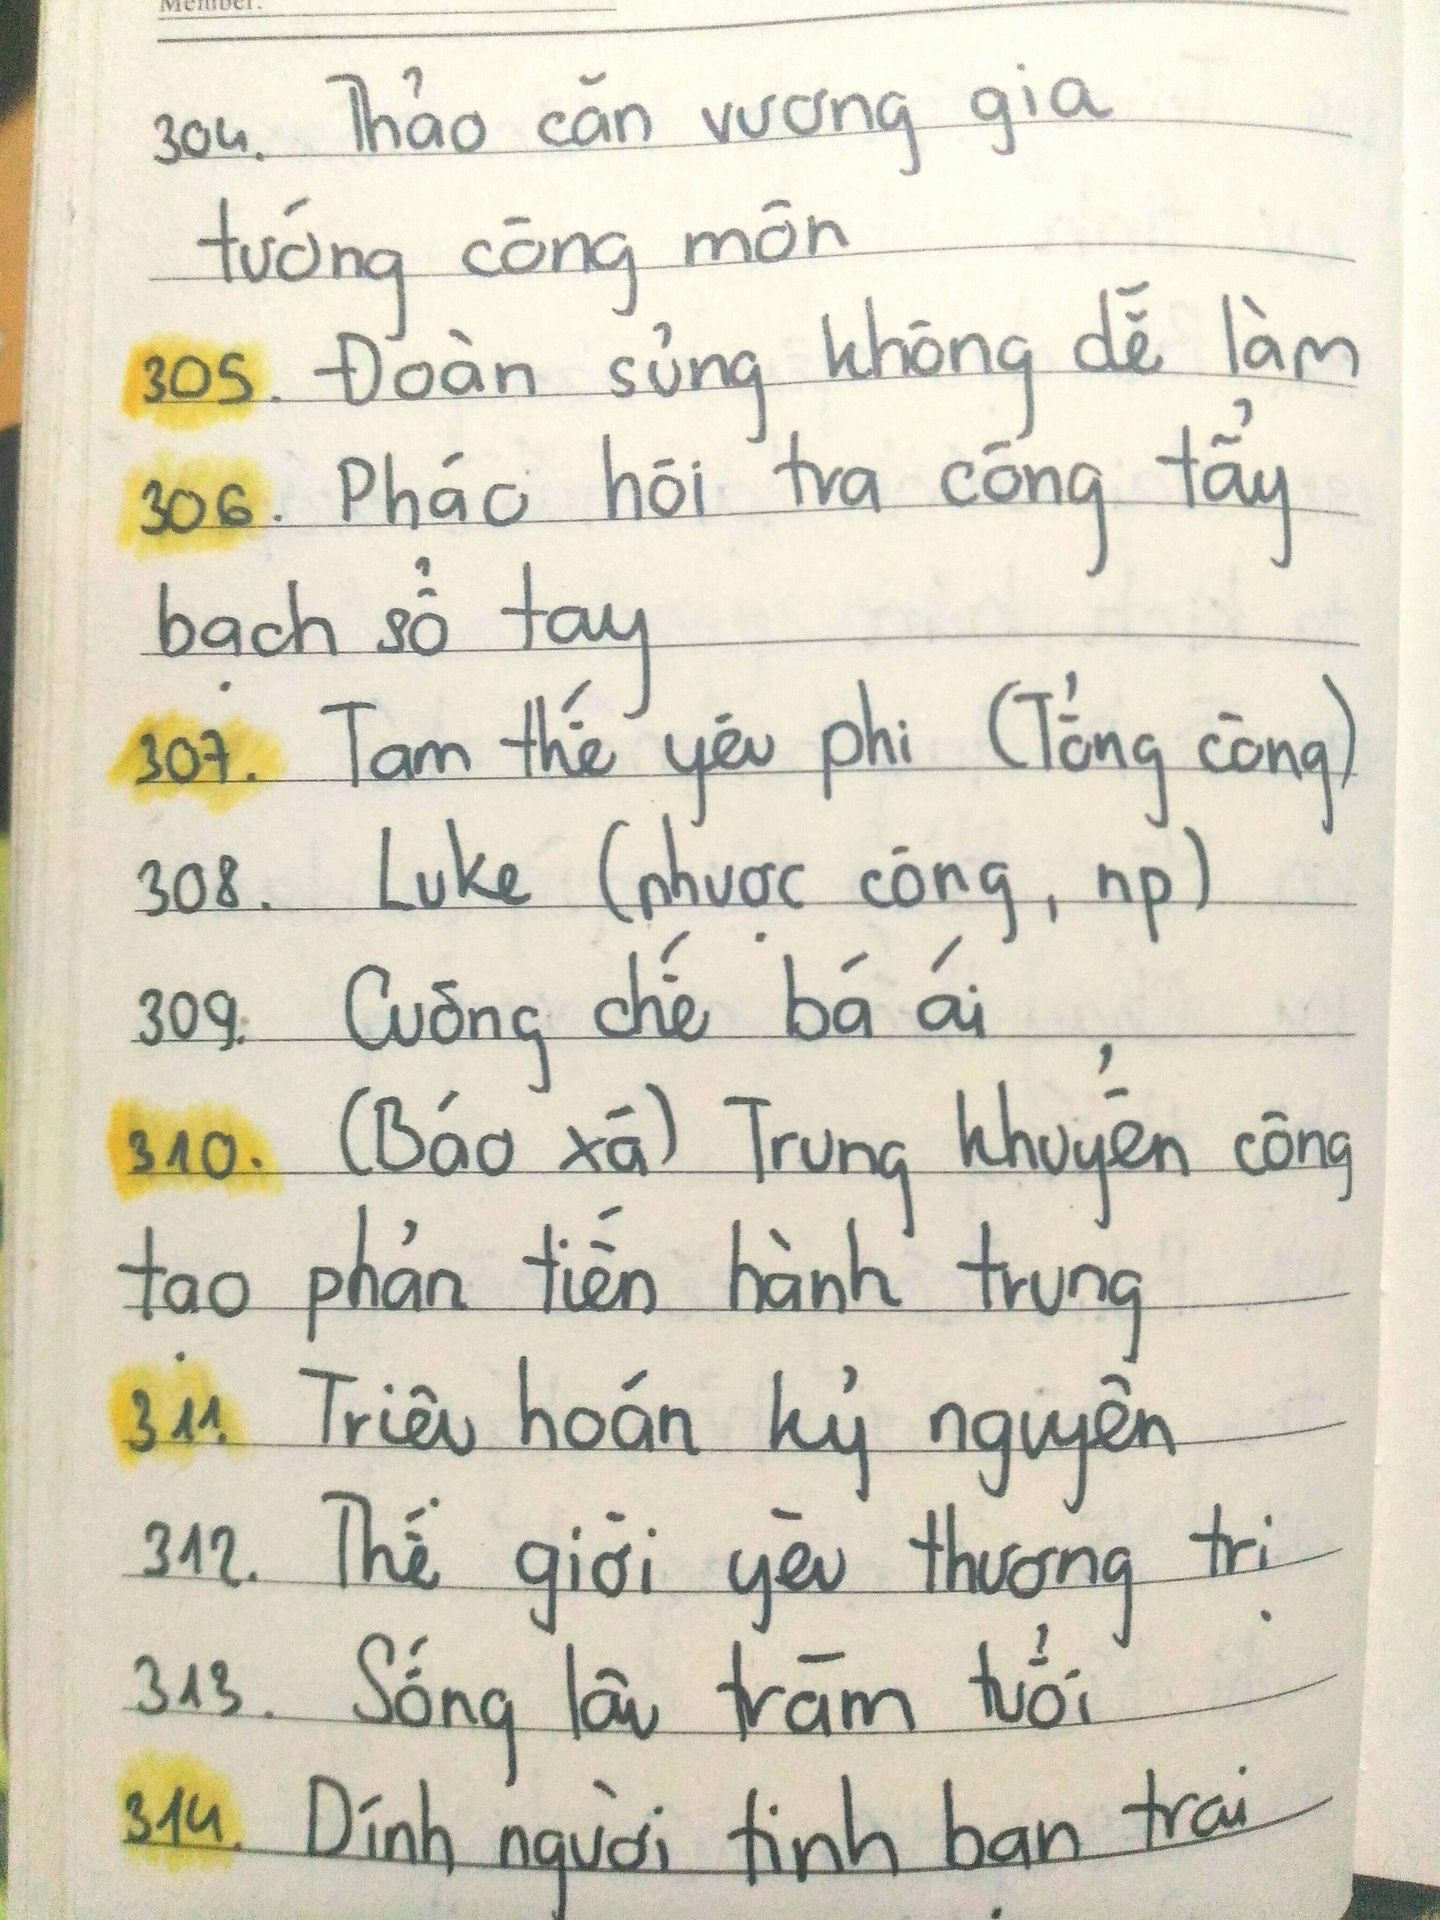 Member:
304. Thảo căn vương gia
tướng công môn
305. Đoàn sủng không dễ làm
306. Pháo hôi tra công tẩy
bạch sổ tay
307. Tam thế yêu phi (Tổng công)
308. Luke (nhược công, np)
309. Cuồng chế bá ái
310. (Báo xã) Trung khuyển công
tạo phản tiến hành trung
311. Triệu hoán kỷ nguyên
312. Thế giới yêu thương trị
313. Sống lâu trăm tuổi
314. Dính người tinh bạn trai